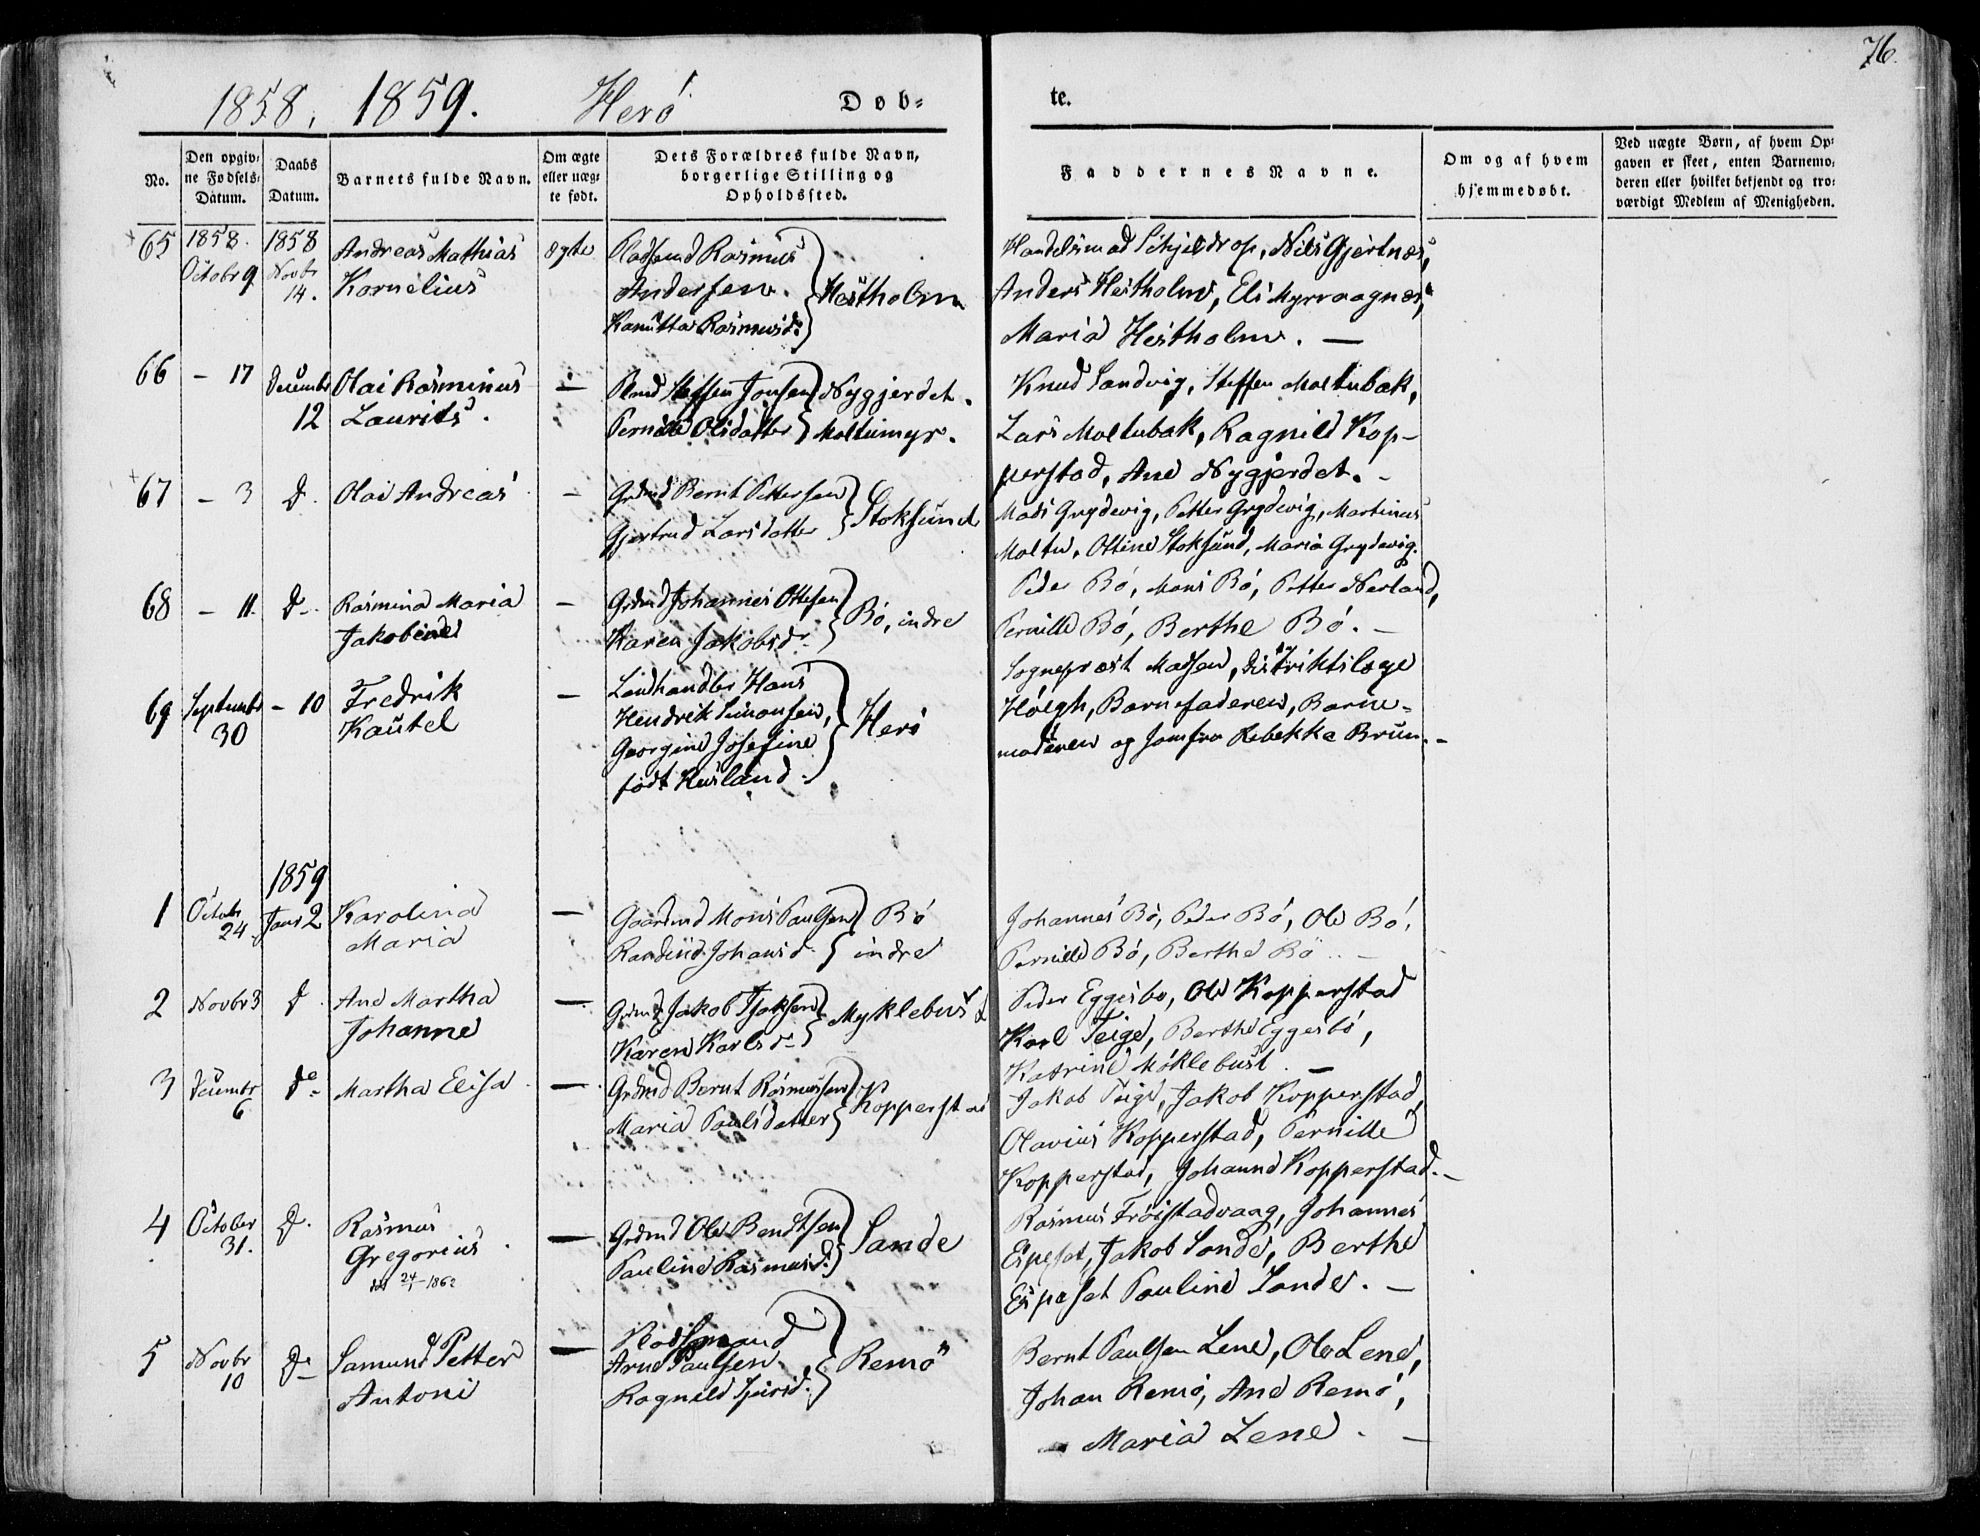 76.
1858, 1859. Herø Døb- te.
No.
Den opgiv-
ne Fødsels-
Datum.
Daabs
Datum.
Barnets fulde Navn.
Om ægte
eller uæg-
te født.
Dets Forældres fulde Navn,
borgerlige Stilling og
Opholdssted.
Faddernes Navne.
Om og af hvem
hjemmedøbt.
Ved uægte Børn, af hvem Op-
gaven er skeet, enten Barnemo-
deren eller hvilket bekjendt og tro-
værdigt Medlem af Menigheden.
65
1858.
Octobr 9
1858
Novbr
14.
Andreas Mathias
Kornelius
ægte
Pladsmd Rasmus
Andersen.
Kanutta Rasmusd.
Hestholm
Handelsmad Schjeldrop, Nils Gjertnæs,
Anders Hestholm, Eli Myrvaagnæs,
Maria Hestholm. —
66
- 17
Decembr
12
Olai Rasminus
Laurits.
—
Plmd Steffen Jonsen
Pernilla Olsdatter
Nygjerdet.
Moltumyr.
Knud Sandvig, Steffen Moltubak,
Lars Moltubak, Ragnild Kop-
perstad, Ane Nygjerdet. -
67
- 3
d.
Olai Andreas
—
Grdmd Bernt Pettersen
Gjertrud Larsdatter
Stoksund
Mads Grydevig, Petter Grydevig, Martinus
Moltu, Ottine Stoksund, Maria Grydevig.
68
- 11.
d.
Rasmina Maria
Jakobine
—
Grdmd Johannes Ottesen
Karen Jakobsdr
Bø, indre
Peder Bø, Mons Bø, Petter Nerland,
Pernille Bø, Berthe Bø. -
69
Septembr
30
- 10
Fredrik
Kautel
—
Landhandler Hans
Hendrik Simonsen,
Georgine Josefine
født Husland.
Herø
Sognepræst Madsen, Distriktslæge
Høegh, Barnefaderen, Barne-
moderen og Jomfru Rebekka Bruun. -
1859
1
Octobr
24
Janr 2
Karolina
Maria
—
Gaardmd Mons Paulsen
Randine Johansd
Bø
indre
Johannes Bø, Peder Bø, Ole Bø,
Pernille Bø, Berthe Bø. -
2
Novbr 3
d
Ane Martha
Johanne
—
Grdmd Jakob Isaksen
Karen Karlsd
Myklebust
Peder Eggesbø, Ole Kopperstad
Karl Teige, Berthe Eggesbø,
Katrine Møklebust. -
3
Decembr
6
do
Martha Elisa
—
Grdmd Bernt Rasmussen
Maria Paulsdatter
Kopperstad
Jakob Teige, Jakob Kopperstad,
Olavius Kopperstad, Pernille
Kopperstad, Johanne Kopperstad. -
4
October
31.
d.
Rasmus
Gregorius
1862
—
Grdmd Ole Bendtsen
Pauline Rasmusd.
Sande
Rasmus Frøistadvaag, Johannes
Espeset, Jakob Sande, Berthe
Espeset Pauline Sande. -
5
Novbr
10
do
Samund Petter
Antoni
—
Pladsmand
Arne Paulsen.
Ragnild Sjursd.
Remø
Bernt Paulsen Lene, Ole Lene,
Johan Remø, Ane Remø,
Maria Lene. -